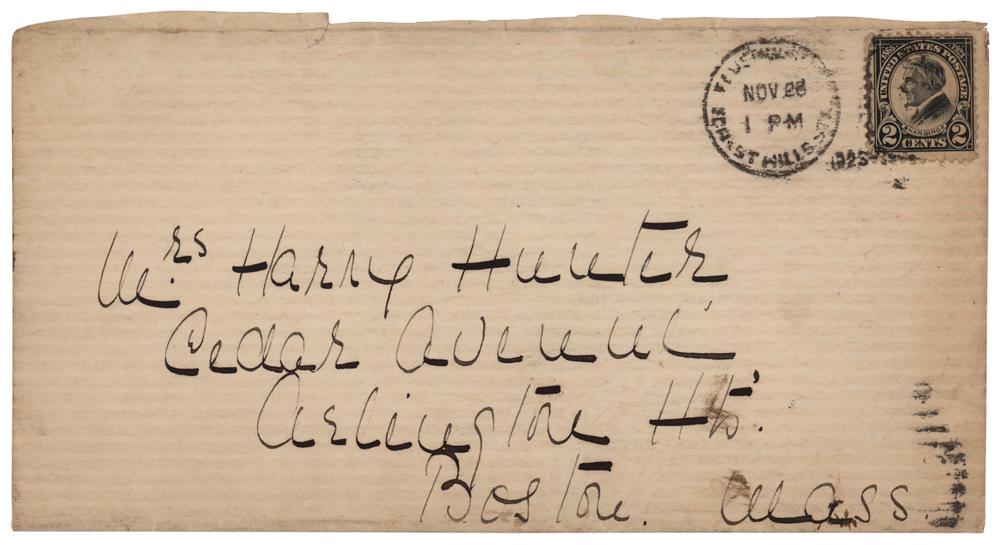 NOV 28
1 PM
1923
1865 1923
UNITED STATES POSTAGE
HARDING
2 CENTS 2
Mrs Harry Hunter
Cedar Avenue
Arlington Hts.
Boston. Mass.